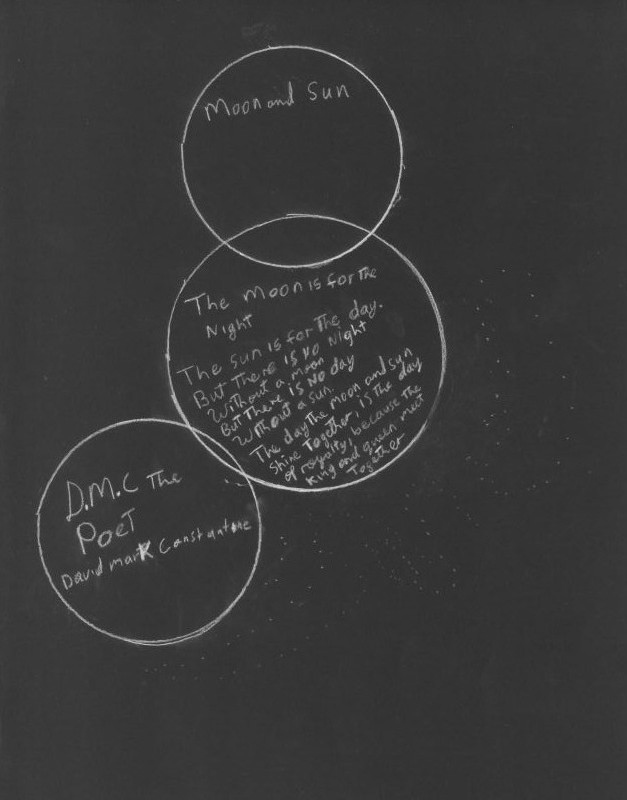 Moon and Sun
The Moon is for the
Night
The sun is for The day.
But There is No Night
Without a moon
But There is No day
Without a sun.
The day The moon and sun
shine Together, is The day
of royalty, because The
King and queen meet
Together
D.M.C The
Poet
David Mark Constantine